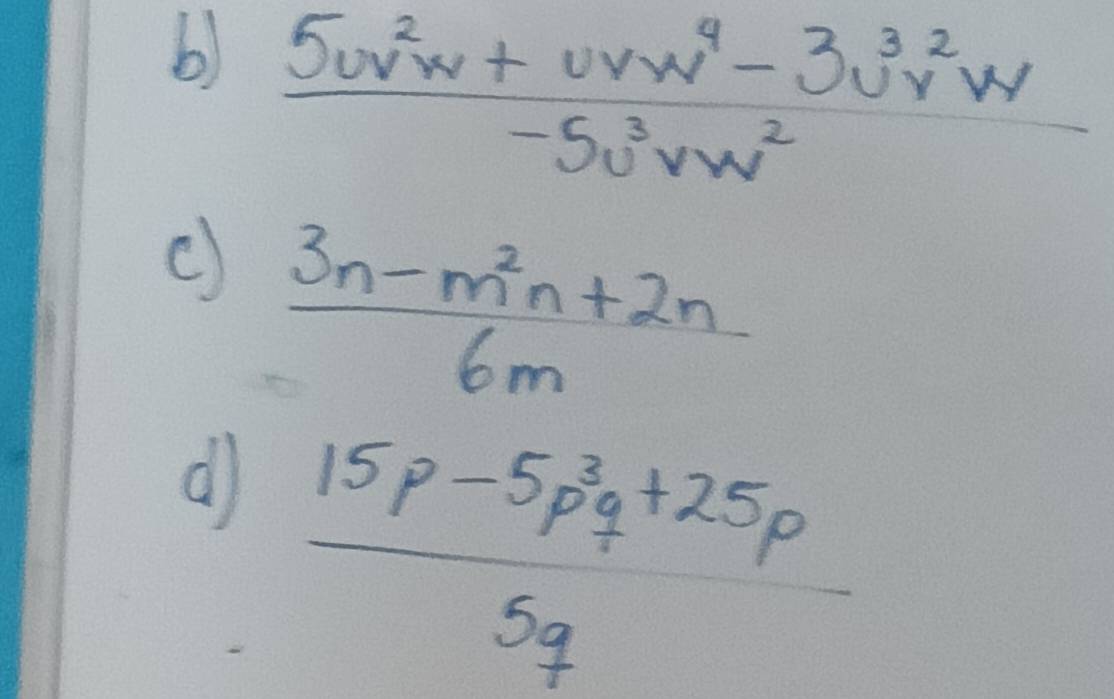 b) 5uv²w + uvw⁴ - 3u³v²w
-5u³vw²
c) 3n - m²n + 2n
6m
d) 15p - 5p³q + 25p
5q